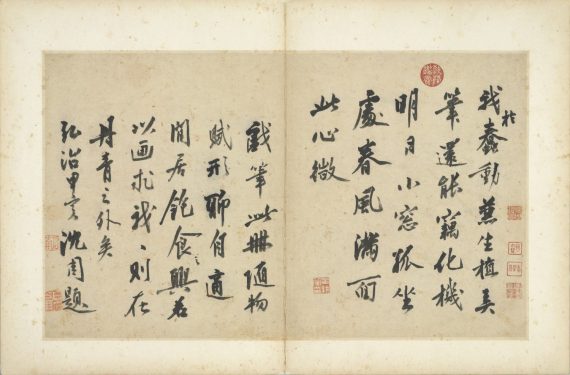 我於蠢動兼生植弄
筆還能竊化機
明日小窓孤坐
處春風滿面
此心微
戲筆此冊隨物
賦形聊自適
閒居飽食之興若
以画求我〻則在
丹青之外矣
弘治甲寅沈周題